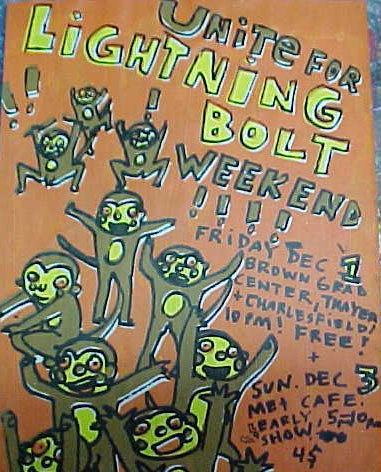 UNiTE FOR
LiGHTNiNG
BOLT
WEEKEND
!!!!!
!!
!
FRiDAY DEC 1
BROWN GRAD
CENTER, THAYER
+ CHARLESFiELD!
10 PM! FREE!
+
SUN. DEC 3
MET CAFE.
EARLY, 5-10 PM
SHOW,